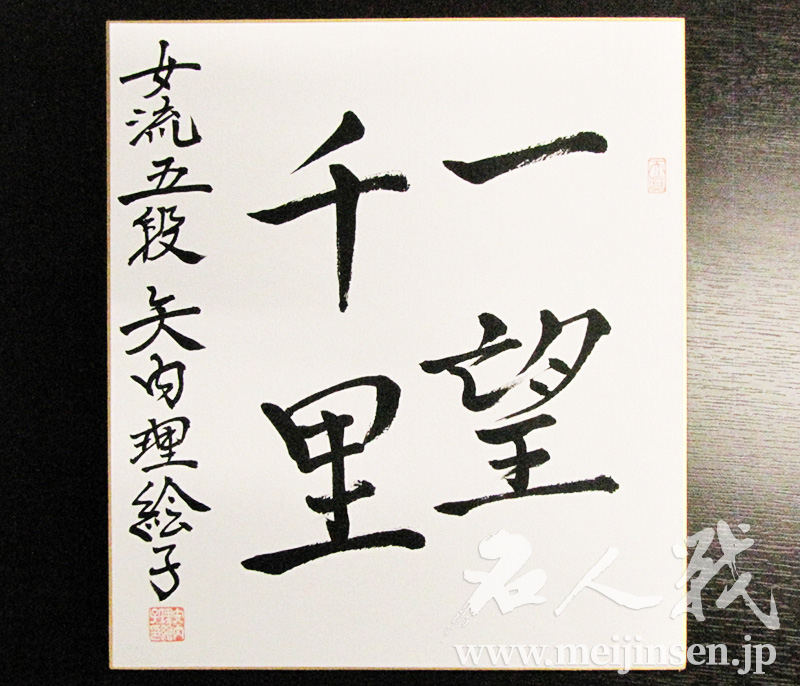 一望
千里
女流五段 矢内理絵子
名人戦
www.meijinsen.jp